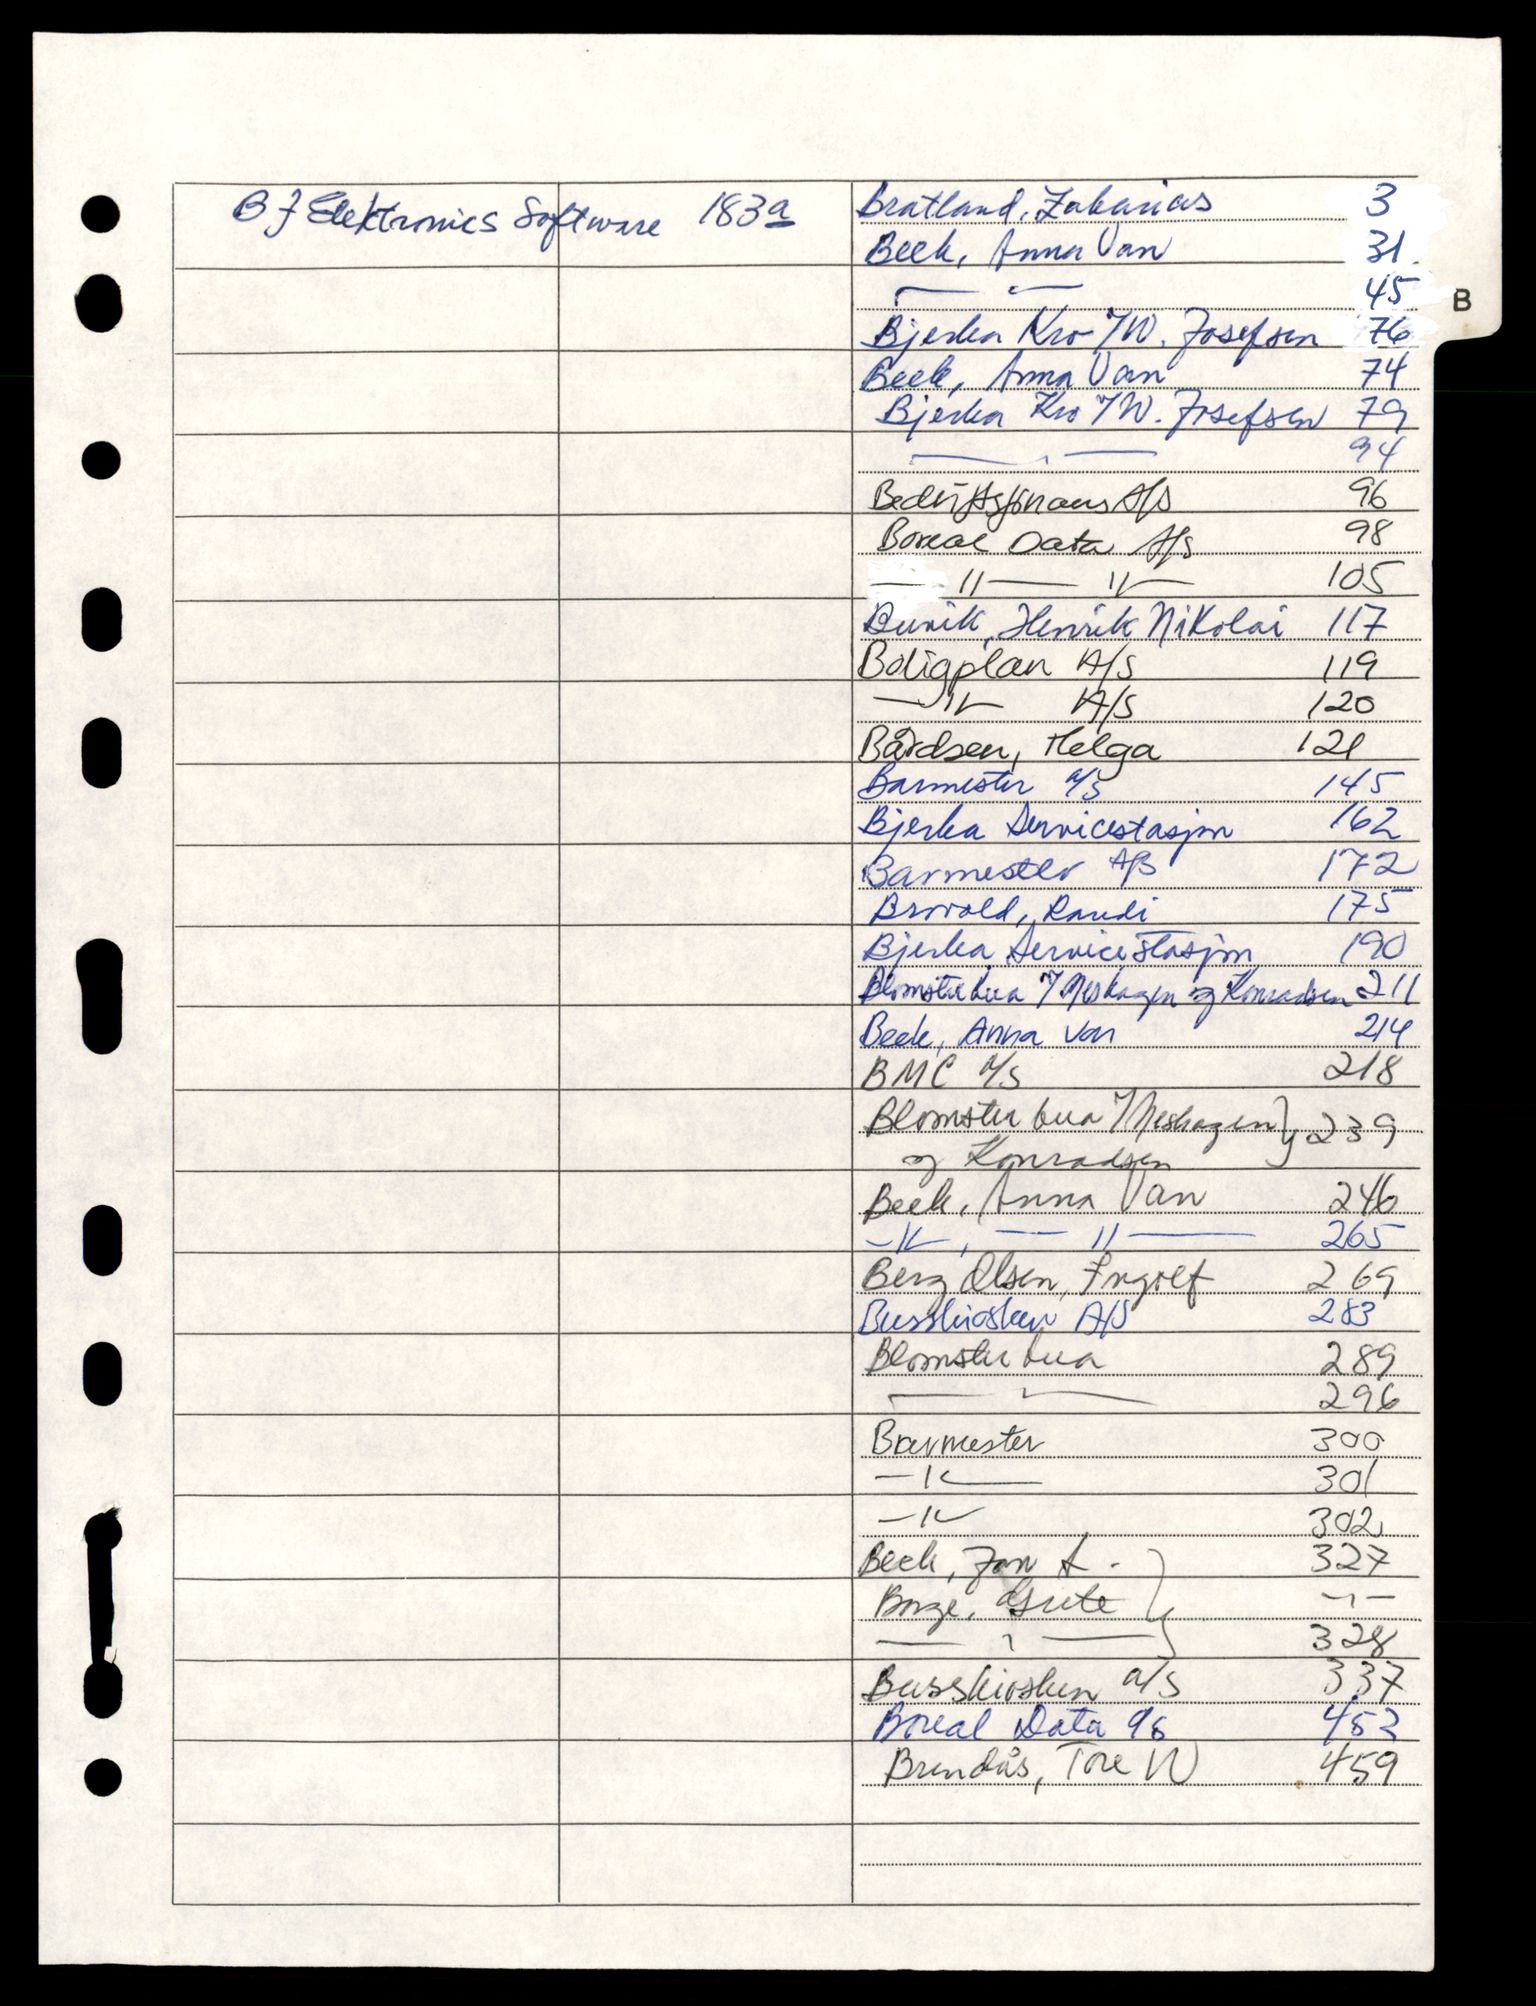 B J Elektronics Software 183a
Bratland, Zakarias 3
Beek, Anna Van 31
— " — 45
B
Bjerka Kro v/W. Josefsen 76
Beek, Anna Van 74
Bjerka Kro v/W. Josefsen 79
— " — 94
Bedriftsfinans A/S 96
Boreal Data A/S 98
— " — " — 105
Buvik, Henrik Nikolai 117
Boligplan A/S 119
— " — A/S 120
Bårdsen, Helga 121
Barmester a/s 145
Bjerka Servicestasjon 162
Barmester A/S 172
Brovold, Randi 175
Bjerka Servicestasjon 190
Blomsterbua v/Neshagen og Konradsen 211
Beek, Anna Van 214
BMC a/s 218
Blomsterbua v/Neshagen 239
og Konradsen
Beek, Anna Van 246
— " —, — " — 265
Berg Olsen, Ingolf 269
Busskiosken A/S 283
Blomsterbua 289
— " — 296
Barmester 300
— " — 301
— " — 302
Beek, Jan A. 327
Borge, Grete — " —
— " — 328
Busskiosken a/s 337
Boreal Data a/s 453
Brendås, Tore W 459